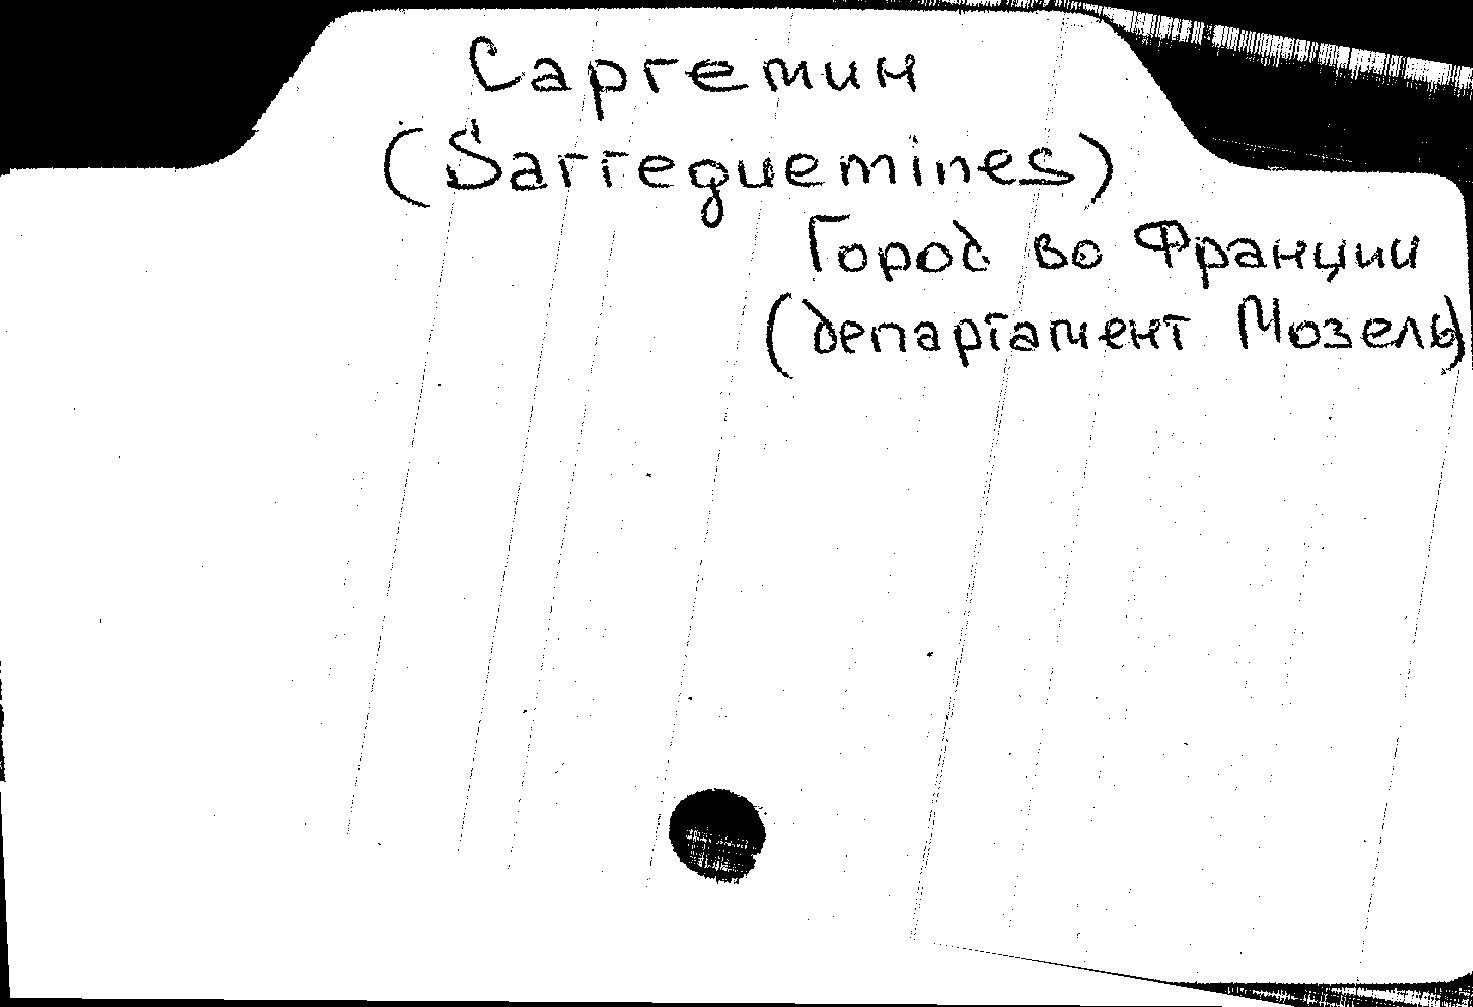 Саргемин
(Sarreguemines)
Город во Франции
(департамент Мозель)